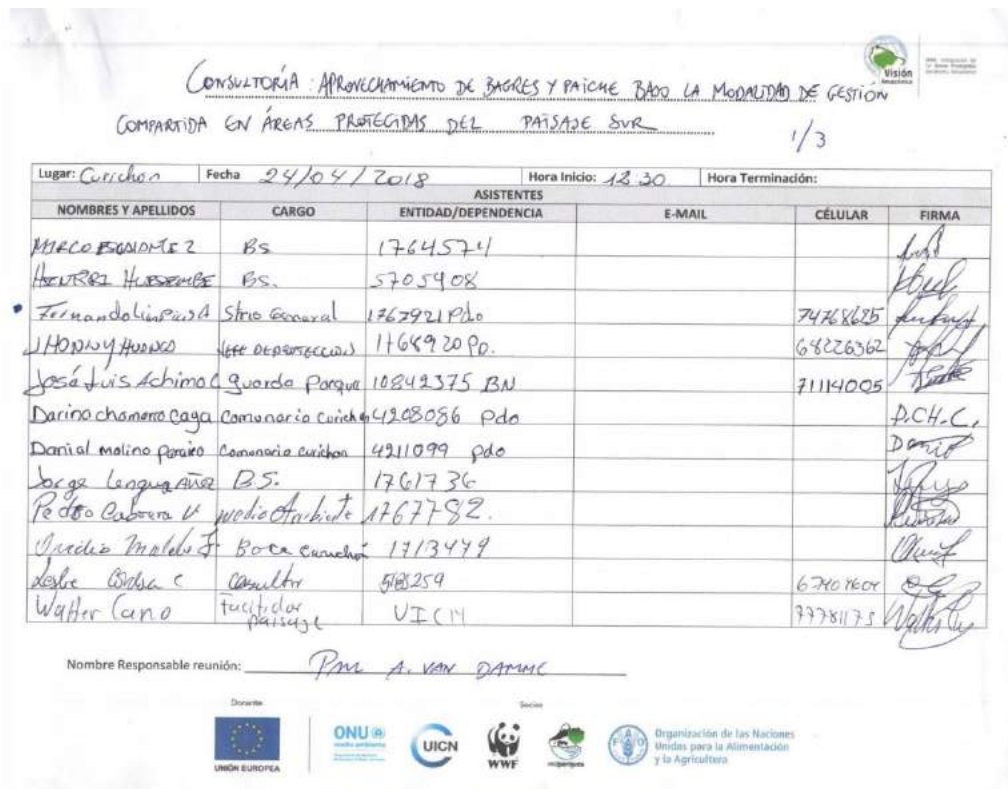 Visión
Amazónica
CONSULTORÍA: APROVECHAMIENTO DE BAGRES Y PAICHE BAJO LA MODALIDAD DE GESTIÓN
COMPARTIDA EN ÁREAS PROTEGIDAS DEL PAISAJE SUR
1/3
Lugar: Curichon Fecha 24/04/2018 Hora Inicio: 12:30 Hora Terminación:
ASISTENTES
NOMBRES Y APELLIDOS CARGO ENTIDAD/DEPENDENCIA E-MAIL CÉLULAR FIRMA
MIRCO BS 1764574
BS. 5705908
Fernando Strio General 1767921 Pdo 74768625
JHONNY HUANCO JEFE DE PROTECCION 1168920 PD. 68226362
José Luis Achimo C guarda Parque 10842375 BN 71114005
Darino chamorro Caga Comunario Curichon 4208086 Pdo D.CH.C.
Danial molino paraiso Comunario curichon 4211099 pdo Danil
Jorge Lengua Añez B.S. 1761736
Pedro Cabrera V medio Ambiente 1767782.
Boca 1713479
Leslie C Consultor
Walter Cano Facilitador paisaje UICN 77781175
Nombre Responsable reunión: A. VAN DAMME
Donante
Socios
UNIÓN EUROPEA
ONU
medio ambiente
UICN
WWF
miparques
FAO
Organización de las Naciones
Unidas para la Alimentación
y la Agricultura